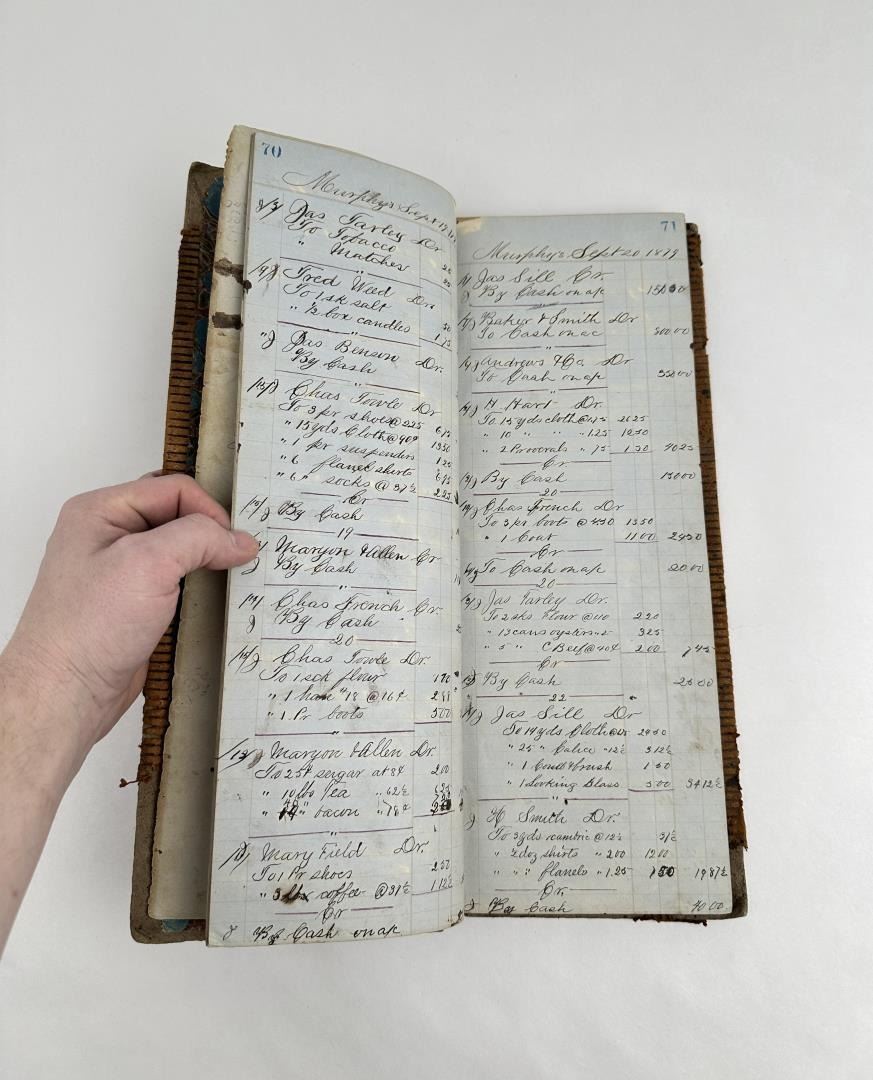 70
Murphys Sept 19
Jas Farley Dr
To Tobacco 20
" Matches
Fred Weed Dr.
To 1 sk salt 50
" ½ box candles 1 75
Jas Benson Dr.
By Cash
Chas Towle Dr
To 3 pr shoes @ 225 6 75
" 15 yds Cloth @ 90¢ 13 50
" 1 pr suspenders 1 25
" 6 flanel shirts 6 75
" 6 " socks @ 37½ 2 25
Cr
By Cash
19
Maryon & Allen Cr
By Cash
"
Chas French Cr.
By Cash
20
Chas Towle Dr.
To 1 sck flour 1 90
" 1 ham # 18 @ 16¢ 2 88
" 1 Pr boots 5 00
"
Maryon & Allen Dr.
To 25# sugar at 8¢ 2 00
" 10 lbs Tea " 62½ 6 25
" bacon " 18¢
"
Mary Field Dr.
To 1 Pr shoes 2 50
" 3 lbs coffee @ 37½ 1 12½
Cr
By Cash on a/c
71
Murphys Sept 20 1879
Jas Sill Cr.
By Cash on a/c
Baker & Smith Dr
To Cash on ac 300 00
"
Andrews & Co. Dr
To Cash on a/c
"
H Hart Dr.
To 15 yds cloth @ 1.75 26 25
" 10 " " " 1.25 12 50
" 2 Pr overals " 75 1 50 40 25
Cr
By Cash 130 00
20
Chas French Dr
To 3 pr boots @ 4 50 13 50
" 1 Coat 11 00 24 50
Cr
To Cash on a/c 20 00
20
Jas Farley Dr.
To 2 sks Flour @ 1 10 2 20
" 13 cans oysters " 25 3 25
" 5 " C Beef @ 40¢ 2 00 7 45
Cr
By Cash 25 00
22
Jas Sill Dr
To 14 yds Cloth @ 24 50
" 25 " Calico " 12½ 3 12½
" 1 Comb & brush 1 50
" 1 Looking Glass 5 00 34 12½
"
H Smith Dr.
To 3 yds cambric @ 12½ 37½
" ½ doz shirts " 2 00 12 00
" " " flanels " 1.25 7 50 19 87½
Cr.
By Cash 40 00